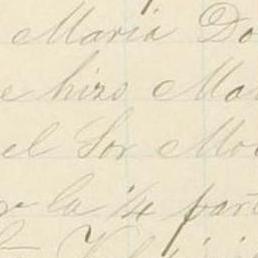 Maria Do
e hizo Ma
el Sor Mo
r la 1/4 part